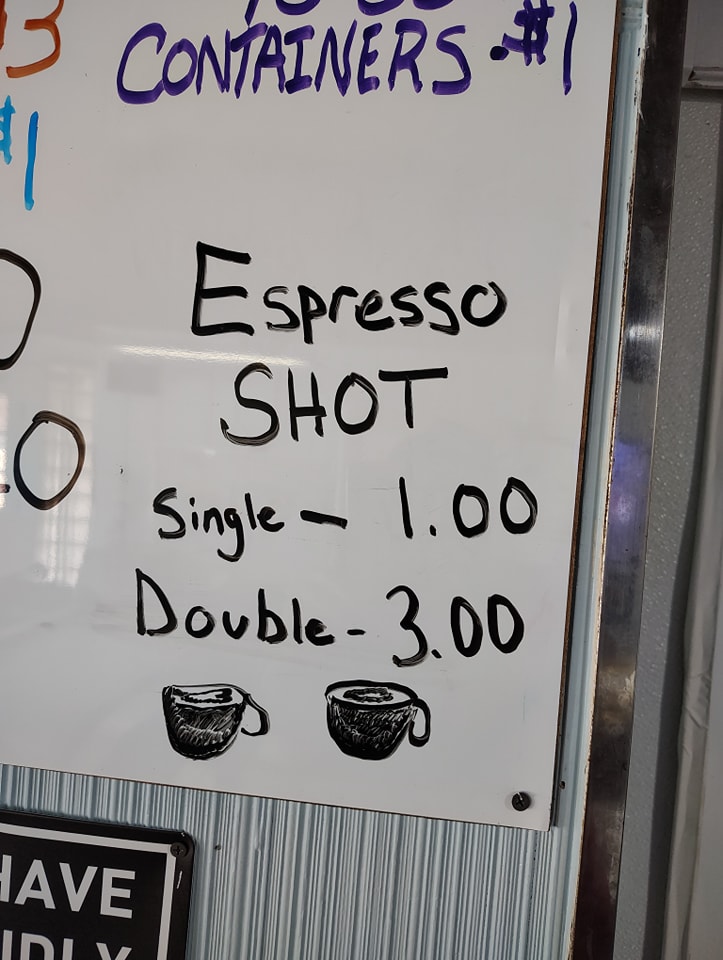 CONTAINERS .$1
Espresso
SHOT
Single - 1.00
Double - 3.00
HAVE